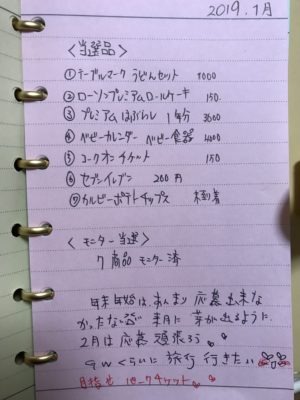 2019.1月
<当選品>
①テーブルマーク うどんセット 1000
②ローソンプレミアムロールケーキ 150
③プレミアム はぶらし 1年分 3600
④ベビーカレンダー ベビー食器 4000
⑤コークオンチケット 150
⑥セブンイレブン 200円
⑦カルビーポテトチップス 未到着
<モニター当選>
7商品 モニター済
年末年始は、あんまり 応募 出来な
かったな 来月に 芽が出るように
2月は 応募 頑張ろう
GWくらいに 旅行 行きたい
目指せ パークチケット